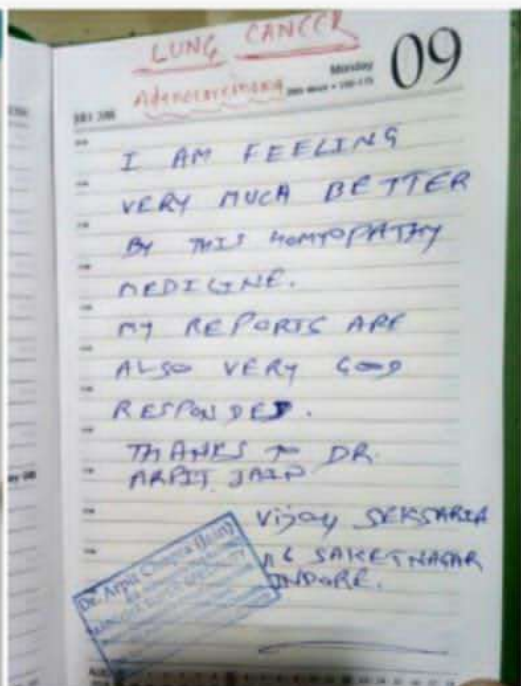 LUNG CANCER
Adenocarcinoma
Monday 09
I AM FEELING
VERY MUCH BETTER
BY THIS HOMYOPATHY
MEDICINE.
MY REPORTS ARE
ALSO VERY GOOD
RESPONDED.
THANKS TO DR.
ARPIT JAIN
Vijay SEKSARIA
SAKETNAGAR
INDORE.
Dr. Arpit Chopra (Jain)